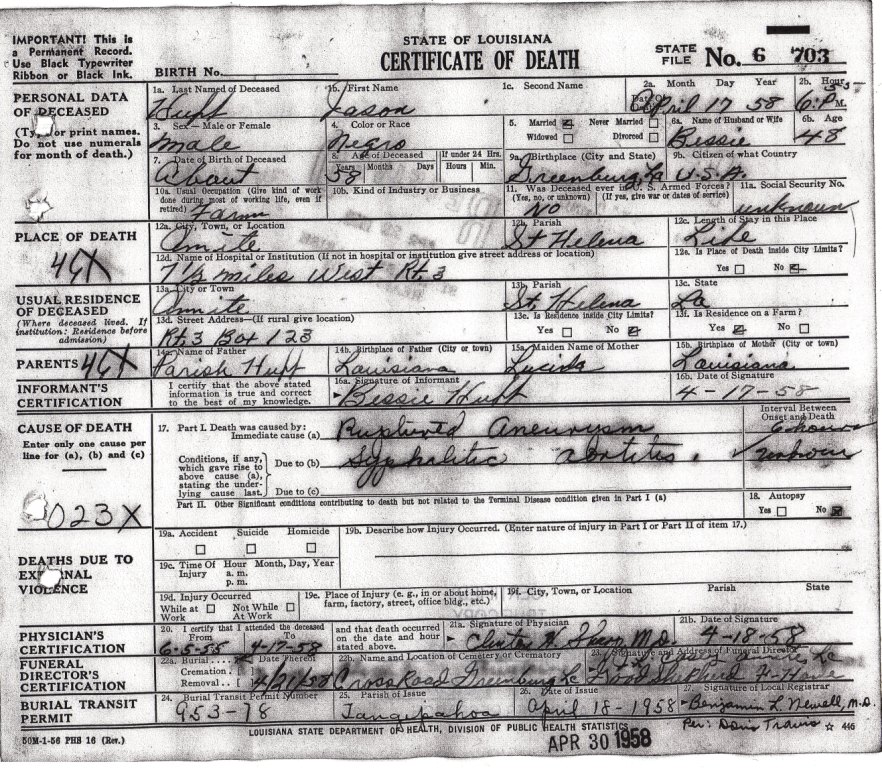 IMPORTANT! This is
a Permanent Record.
Use Black Typewriter
Ribbon or Black Ink.
STATE OF LOUISIANA
CERTIFICATE OF DEATH
BIRTH No.
STATE
FILE No. 6 703
PERSONAL DATA
OF DECEASED
(Type or print names.
Do not use numerals
for month of death.)
1a. Last Name of Deceased
Huff
1b. First Name
Jason
1c. Second Name
2a. Month Day Year
April 17 58
2b. Hour
6: P M.
3. Sex—Male or Female
male
4. Color or Race
Negro
5. Married Never Married
Widowed Divorced
6a. Name of Husband or Wife
Bessie
6b. Age
48
7. Date of Birth of Deceased
About
8. Age of Deceased
Years Months Days
58
If under 24 Hrs.
Hours Min.
9a. Birthplace (City and State)
Greenburg La
9b. Citizen of what Country
U.S.A.
10a. Usual Occupation (Give kind of work
done during most of working life, even if
retired)
Farm
10b. Kind of Industry or Business
11. Was Deceased ever in U. S. Armed Forces?
(Yes, no, or unknown) (If yes, give war or dates of service)
No
11a. Social Security No.
unknown
PLACE OF DEATH
46X
12a. City, Town, or Location
Amite
12b. Parish
St Helena
12c. Length of Stay in this Place
Life
12d. Name of Hospital or Institution (If not in hospital or institution give street address or location)
7½ miles West Rt. 3
12e. Is Place of Death inside City Limits?
Yes No
USUAL RESIDENCE
OF DECEASED
(Where deceased lived. If
institution: Residence before
admission)
13a. City or Town
Amite
13b. Parish
St. Helena
13c. State
La
13d. Street Address—(If rural give location)
Rt. 3 Box 123
13e. Is Residence inside City Limits?
Yes No
13f. Is Residence on a Farm?
Yes No
PARENTS 46X
14a. Name of Father
Parish Huff
14b. Birthplace of Father (City or town)
Louisiana
15a. Maiden Name of Mother
Lucinda
15b. Birthplace of Mother (City or Town)
Louisiana
INFORMANT'S
CERTIFICATION
I certify that the above stated
information is true and correct
to the best of my knowledge.
16a. Signature of Informant
Bessie Huff
16b. Date of Signature
4-17-58
CAUSE OF DEATH
Enter only one cause per
line for (a), (b) and (c)
023X
Interval Between
Onset and Death
17. Part I. Death was caused by:
Immediate cause (a) Ruptured Aneurysm
Conditions, if any,
which gave rise to
above cause (a),
stating the under-
lying cause last.
Due to (b) Syphalitic aortites.
Due to (c)
Part II. Other Significant conditions contributing to death but not related to the Terminal Disease condition given in Part I (a)
18. Autopsy
Yes No
DEATHS DUE TO
EXTERNAL
VIOLENCE
19a. Accident Suicide Homicide
19b. Describe how Injury Occurred. (Enter nature of injury in Part I or Part II of item 17.)
19c. Time Of Hour Month, Day, Year
Injury a. m.
p. m.
19d. Injury Occurred
While at Not While
Work At Work
19e. Place of Injury (e. g., in or about home,
farm, factory, street, office bldg., etc.)
19f. City, Town, or Location Parish State
PHYSICIAN'S
CERTIFICATION
20. I certify that I attended the deceased
From To
6-5-55 4-17-58
and that death occurred
on the date and hour
stated above.
21a. Signature of Physician
M.D.
21b. Date of Signature
4-18-58
FUNERAL
DIRECTOR'S
CERTIFICATION
22a. Burial
Cremation
Removal
Date Thereof
4/21/58
22b. Name and Location of Cemetery or Crematory
Cross Road Greenburg La
23. Signature and Address of Funeral Director
F-Home
BURIAL TRANSIT
PERMIT
24. Burial Transit Permit Number
953-78
25. Parish of Issue
Tangipahoa
26. Date of Issue
April 18-1958
27. Signature of Local Registrar
Benjamin L. Newell, M.D.
Per: Doris Travis
☆ 446
50M-1-56 PHS 16 (Rev.)
LOUISIANA STATE DEPARTMENT OF HEALTH, DIVISION OF PUBLIC HEALTH STATISTICS
APR 30 1958